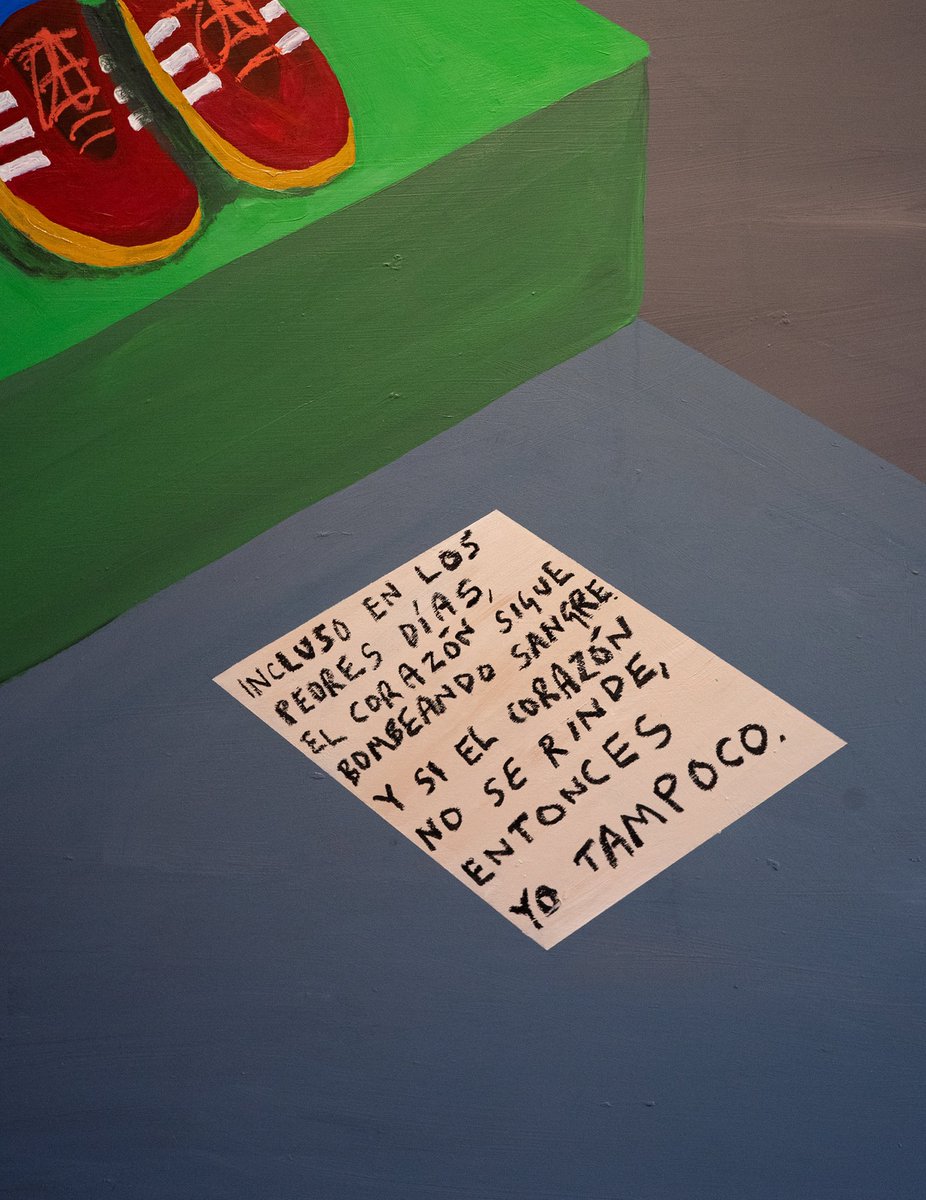 INCLUSO EN LOS
PEORES DÍAS,
EL CORAZÓN SIGUE
BOMBEANDO SANGRE.
Y SI EL CORAZÓN
NO SE RINDE,
ENTONCES
YO TAMPOCO.